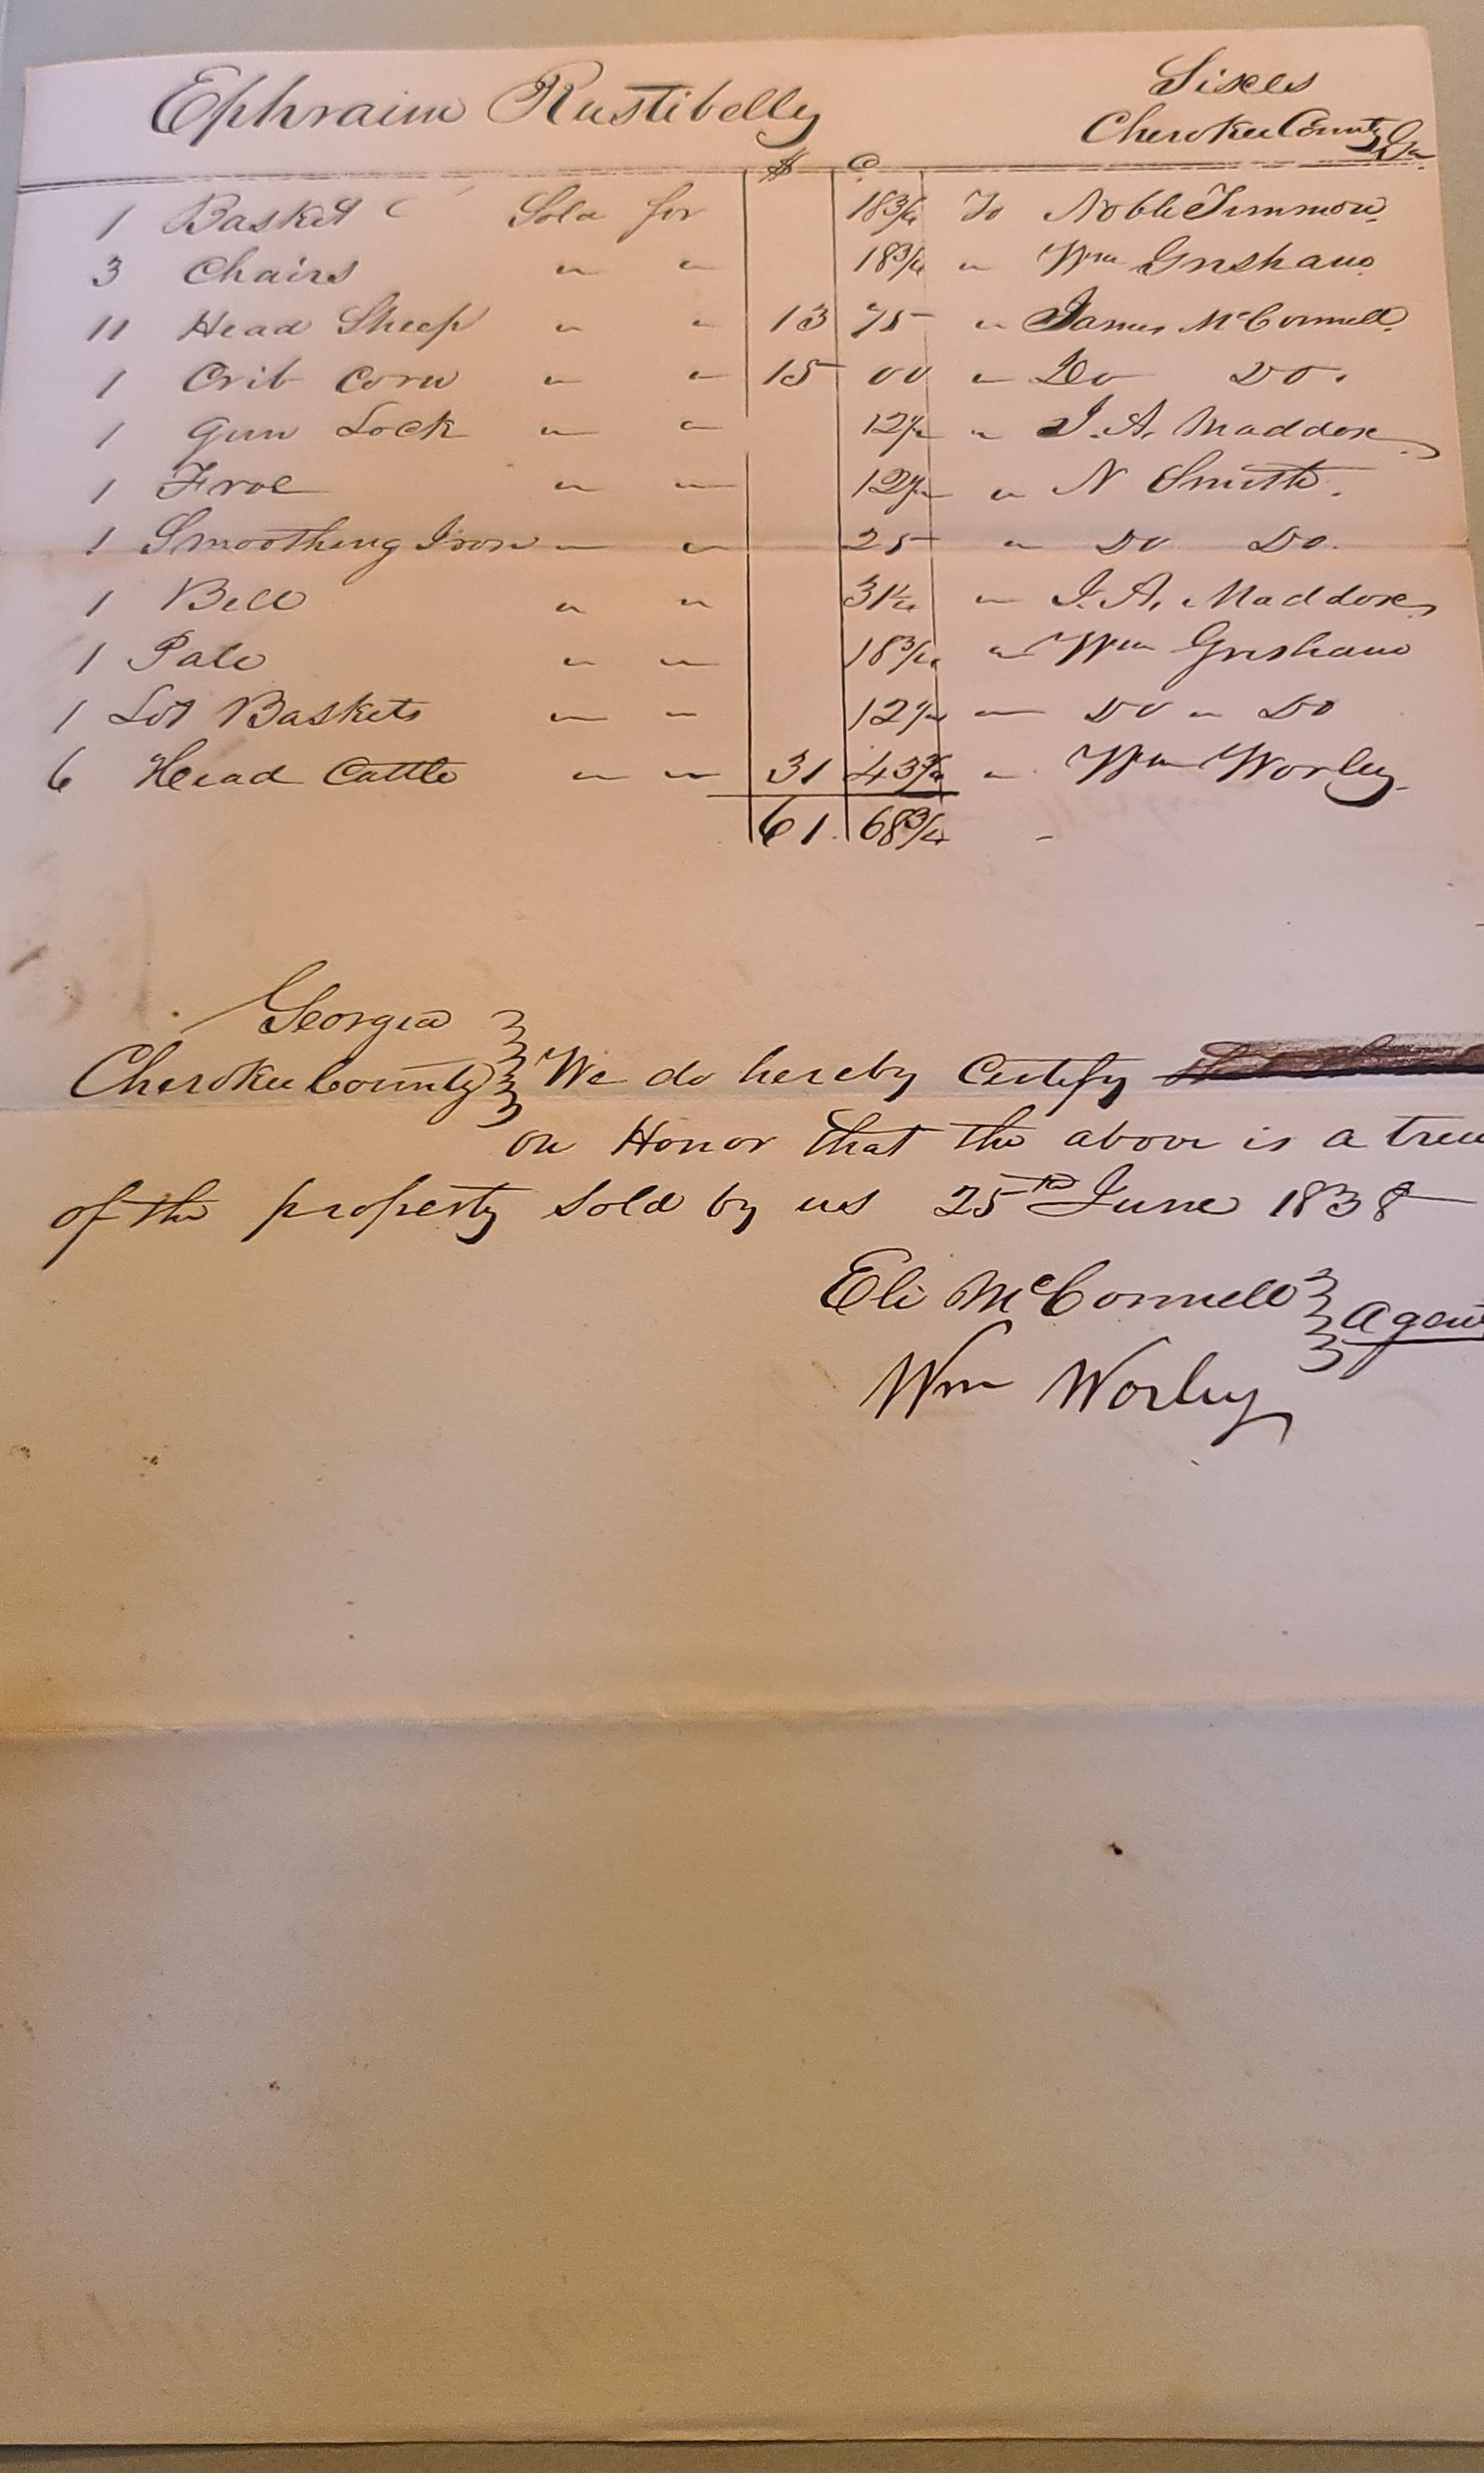 Ephraim Rustibelly Sixes
Cherokee County Ga
$ C
1 Basket Sold for 18 3/4 To Noble Timmons
3 Chairs " " 18 3/4 " Wm Grisham
11 Head Sheep " " 13 75 " James McConnell
1 Crib Corn " " 15 00 " Do Do.
1 Gun Lock " " 12 1/2 " J. A. Maddox
1 Froe " " 12 1/2 " N Smith.
1 Smoothing Iron " " 25 " Do Do.
1 Bell " " 31 1/4 " J. A. Maddox
1 Pale " " 18 3/4 " Wm Grisham
1 Lot Baskets " " 12 1/2 " Do " Do
6 Head Cattle " " 31 43 3/4 " Wm Worley
61 68 3/4
Georgia
Cherokee County We do hereby Certify
on Honor that the above is a true
of the property Sold by us 25th June 1838
Eli McConnell Agent
Wm Worley